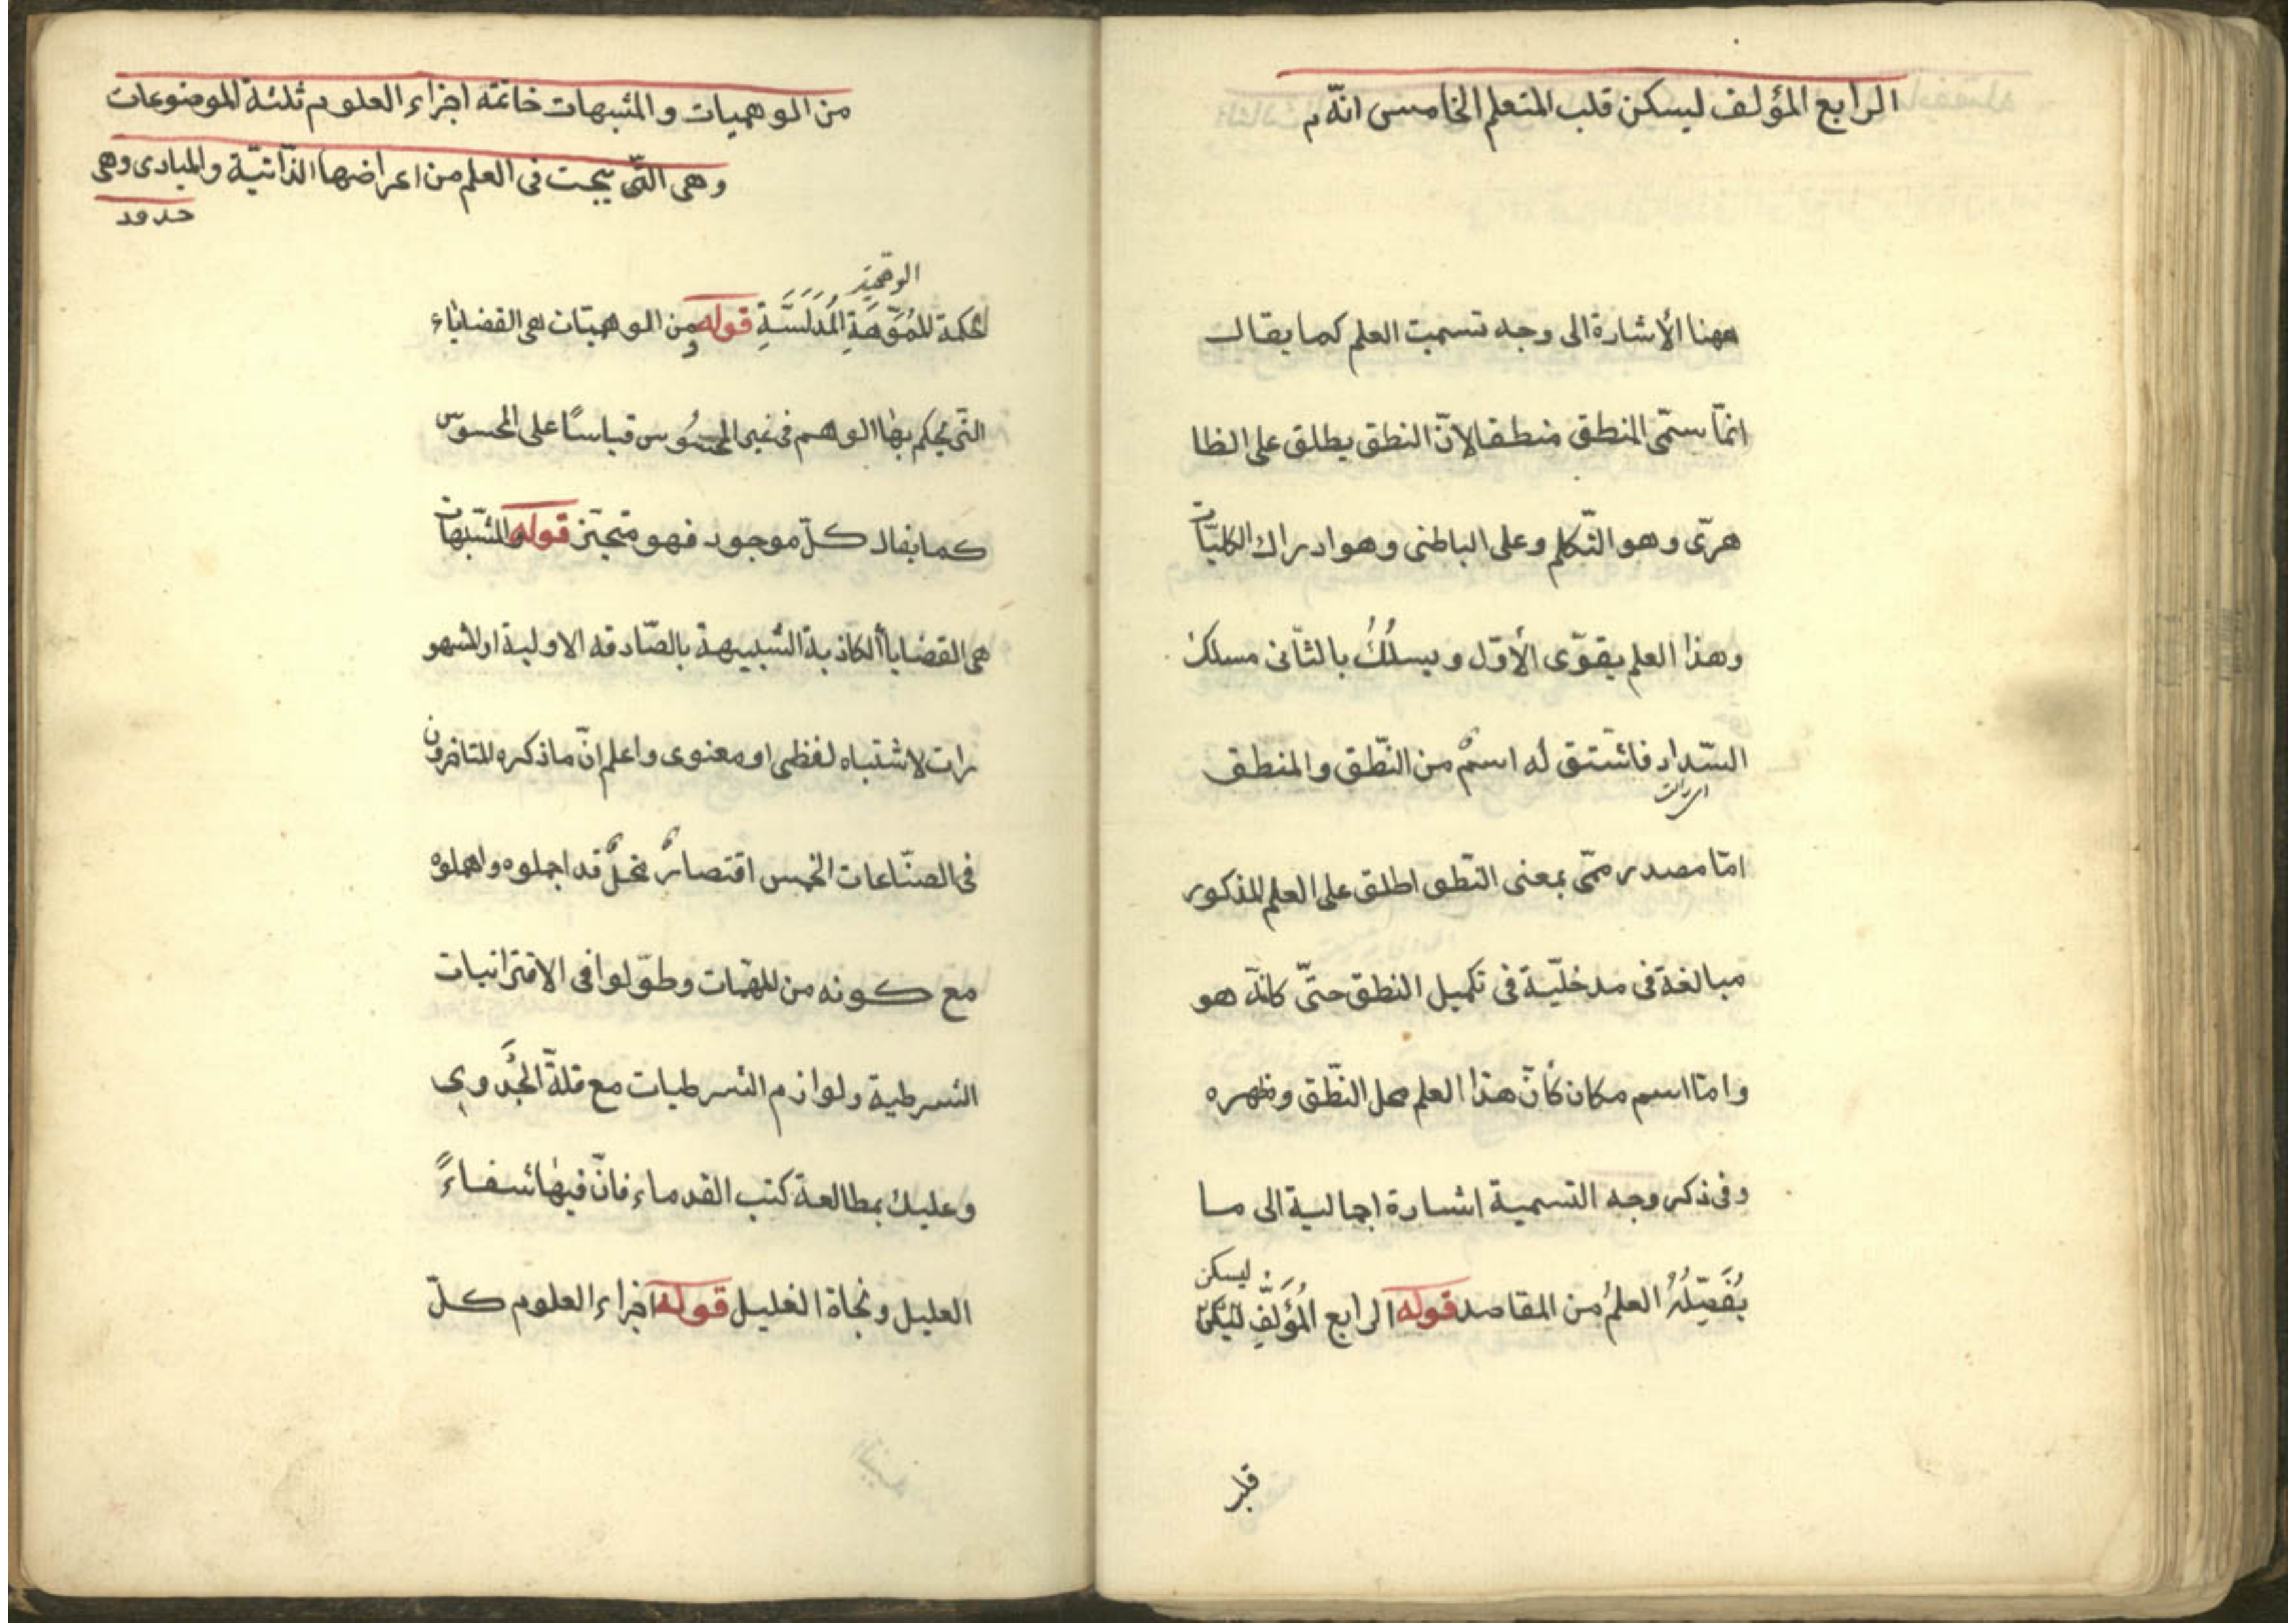 الرابع المؤلف ليسكن قلب المتعلم الخامس انّه م
ههنا الأشارة الى وجه تسميت العلم كما يقال
انمّا سمّى المنطق منطقا لانّ النطق يطلق على الظا
هرّى وهو التّكلم وعلى الباطنى وهو ادراك الكليّات
وهذا العلم يقوّى الأوّل ويسلُكُ بالثّانى مسلك
السّداد فاشتق له اسمٌ من النّطق والمنطق
امّا مصدر ممّى بمعنى النّطق اطلق على العلم المذكور
مبالغة فى مدخليّة فى تكميل النطق حتىّ كانّه هو
وامّا اسم مكان كأنّ هذا العلم محل النّطق وظهره
وفى ذكر وجه التسمية اشارة اجمالية الى ما
ليسكن
يُفَصِّلُهُ العلمُ من المقاصد قوله الرابع المُؤَلِّفِ
قلب
من الوهميات والمشبهات خاتمة اجزاء العلوم ثلثة الموضوعات
وهى التّى يبحث فى العلم من اعراضها الذّاتيّة والمبادى وهى
حدود
لحكمة المُمَوَّهَةِ المُدَلَّسَةِ قوله ومن الوهميّات هى القضاياء
التّى يحكم بها الوهم فى غير المحسُوس قياسًا على المحسوس
كما يقال كلّ موجود فهو متحيّز قوله والمشبّهات
هى القضايا الكاذبة الشبيهة بالصّادقه الاولية او المشهو
رات لاشتباه لفظى او معنوى واعلم انّ ما ذكره المتاخرون
فى الصنّاعات الخمس اقتصارٌ مخلٌّ قد اجملوه واهملوه
مع كونه من المهمّات وطوّلوا فى الاقترانيات
الشرطية ولوازم الشرطيات مع قلّة الجَدوى
وعليك بمطالعة كتب القدماء فانّ فيها شفاءً
العليل ونجاة الغليل قوله اجزاء العلوم كلّ